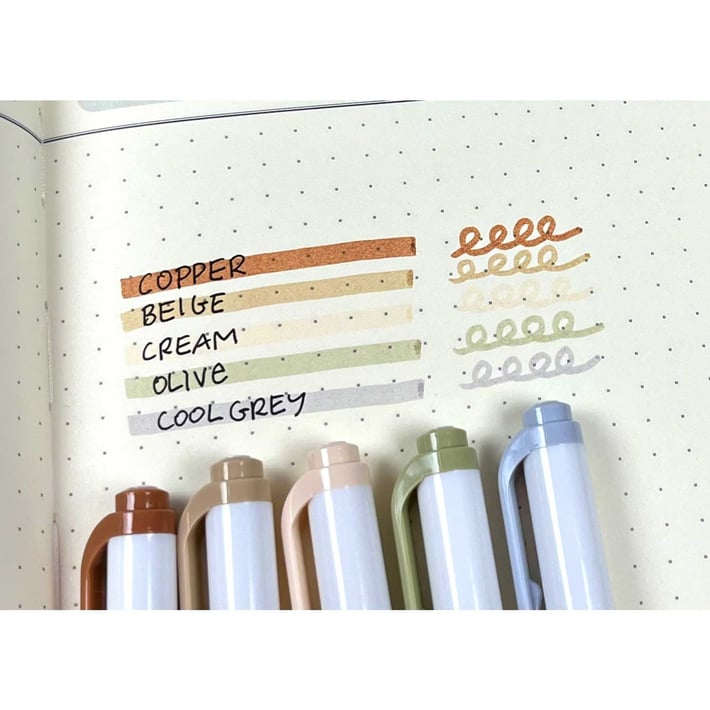 COPPER
BEIGE
CREAM
OLIVE
COOL GREY